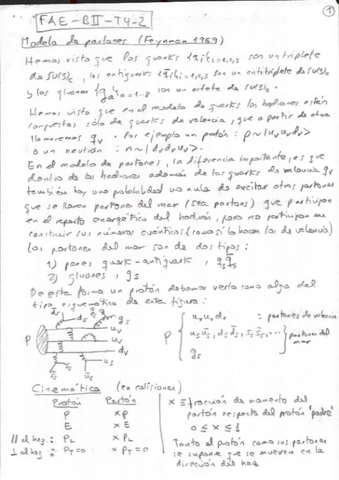 ①
FAE-BII-T4-2
Modelo de partones (Feynman 1969)
Hemos visto que los quarks {qi}i=1,2,3 son un triplete
de SU(3)c, los antiquarks {q̄i}i=1,2,3 son un antitriplete de SU(3)c
y los gluones {ga}a=1..8 son un octete de SU(3)c.
Hemos visto que en el modelo de quarks los hadrones están
compuestos sólo de quarks de valencia, que a partir de ahora
llamaremos qv. Por ejemplo un protón: p~|uv uv dv>
o un neutrón: n~|dv dv uv>.
En el modelo de partones, la diferencia importante, es que
dentro de los hadrones además de los quarks de valencia qv
también hay una probabilidad no nula de excitar otros partones
que se llaman partones del mar (sea partons) que participan
en el reparto energético del hadrón, pero no participan en
construir sus números cuánticos (como sí lo hacen los de valencia)
Los partones del mar son de dos tipos:
1) pares quark-antiquark, qs q̄s
2) gluones, gs
De esta forma un protón debemos verlo como algo del
tipo esquemático de esta figura:
p
uv
uv
dv
ds
d̄s
us
ūs
gs
p { uv uv dv : partones de valencia
us ūs, ds d̄s, ss s̄s, ... } partones del mar
gs
Cinemática (en colisiones)
Protón Partón
P xP
E xE
∥ al haz: PL xPL
⊥ al haz: PT=0 xPT=0
x ≡ fracción de momento del
partón respecto del protón "padre"
0 ≤ x ≤ 1
Tanto el protón como sus partones
se supone que se mueven en la
dirección del haz